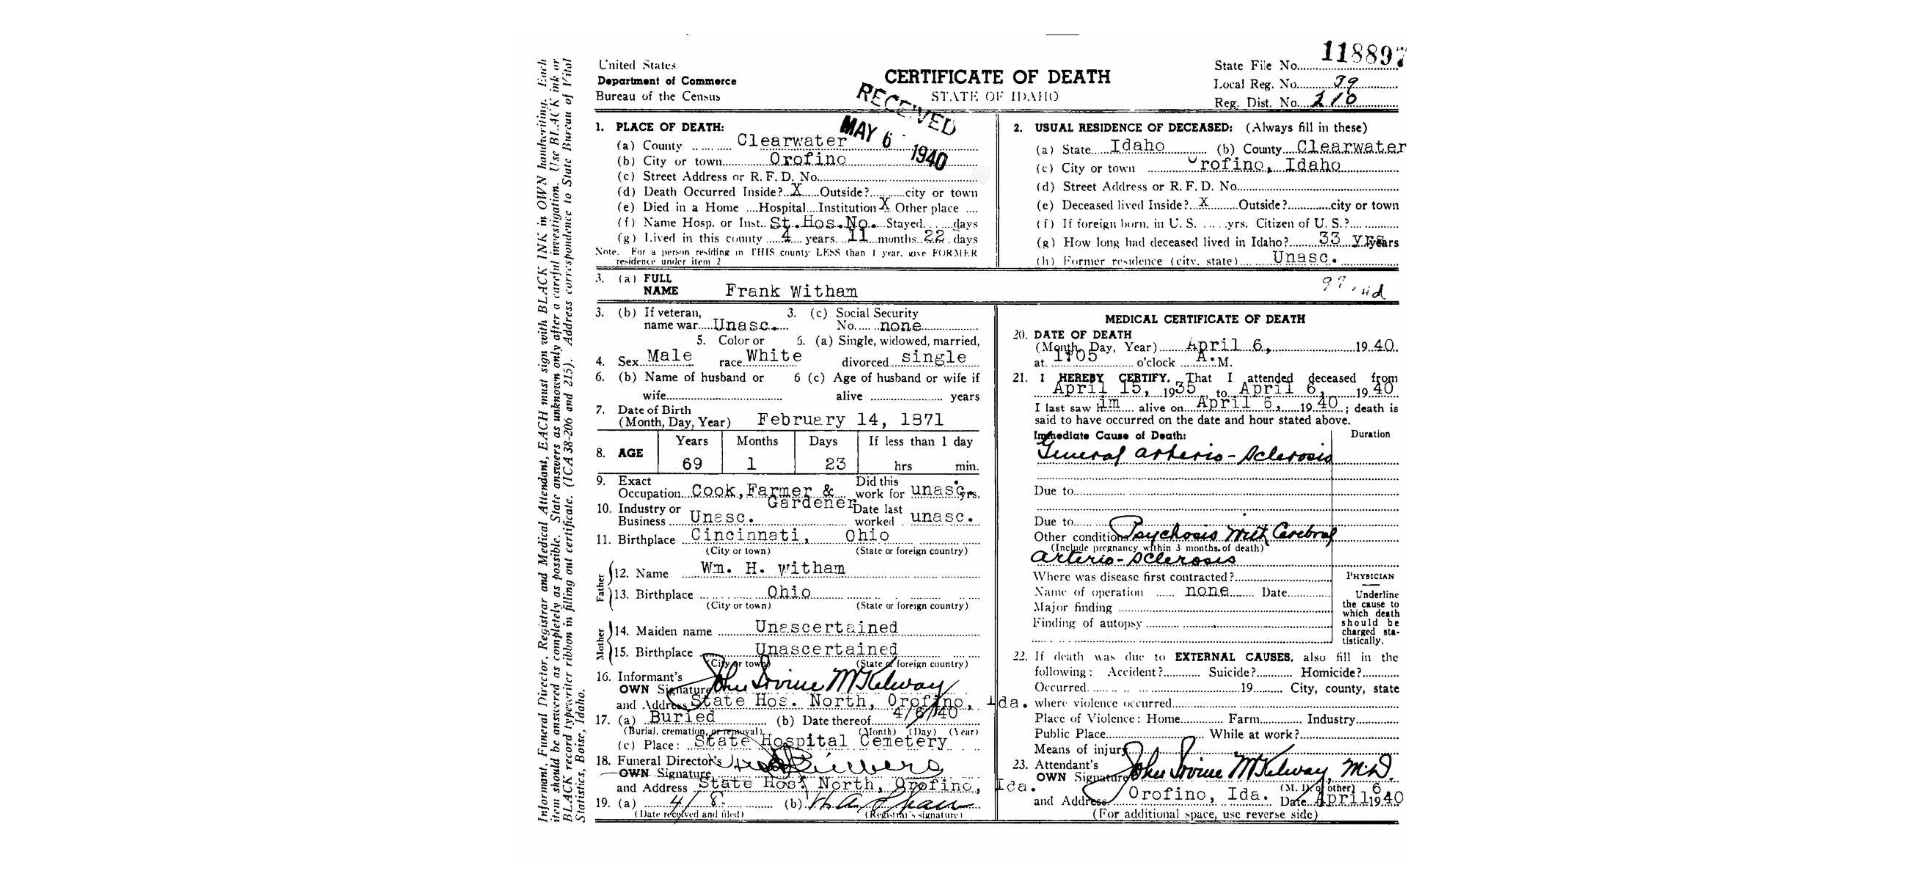 Informant, Funeral Director, Registrar and Medical Attendant, EACH must sign with BLACK INK in OWN handwriting. Each
item should be answered as completely as possible. State answers as unknown only after a careful investigation. Use BLACK ink or
BLACK record typewriter ribbon in filling out certificate. (ICA 38-206 and 215). Address correspondence to State Bureau of Vital
Statistics, Boise, Idaho.
United States
Department of Commerce
Bureau of the Census
CERTIFICATE OF DEATH
STATE OF IDAHO
RECEIVED
MAY 6 1940
State File No. 118897
Local Reg. No. 39
Reg. Dist. No. 210
1. PLACE OF DEATH:
(a) County Clearwater
(b) City or town Orofino
(c) Street Address or R. F. D. No.
(d) Death Occurred Inside? X Outside? city or town
(e) Died in a Home Hospital Institution X Other place
(f) Name Hosp. or Inst. St.Hos.No. Stayed days
(g) Lived in this county 4 years 11 months 22 days
Note. For a person residing in THIS county LESS than 1 year, give FORMER
residence under item 2
2. USUAL RESIDENCE OF DECEASED: (Always fill in these)
(a) State Idaho (b) County Clearwater
(c) City or town Orofino, Idaho
(d) Street Address or R. F. D. No.
(e) Deceased lived Inside? X Outside? city or town
(f) If foreign born, in U. S. yrs. Citizen of U. S.?
(g) How long had deceased lived in Idaho? 33 yrs years
(h) Former residence (city, state) Unasc.
3. (a) FULL
NAME Frank Witham
3. (b) If veteran, 3. (c) Social Security
name war Unasc. No. none
5. Color or 6. (a) Single, widowed, married,
4. Sex Male race White divorced single
6. (b) Name of husband or 6 (c) Age of husband or wife if
wife alive years
7. Date of Birth
(Month, Day, Year) February 14, 1871
8. AGE Years Months Days If less than 1 day
69 1 23 hrs min.
9. Exact Did this
Occupation Cook, Farmer & Gardener work for unasc. yrs.
10. Industry or Date last
Business Unasc. worked unasc.
11. Birthplace Cincinnati, Ohio
(City or town) (State or foreign country)
Father
12. Name Wm. H. Witham
13. Birthplace Ohio
(City or town) (State or foreign country)
Mother
14. Maiden name Unascertained
15. Birthplace Unascertained
(City or town) (State or foreign country)
16. Informant's
OWN Signature John Irvine McKelway
and Address State Hos. North, Orofino, Ida.
17. (a) Buried (b) Date thereof 4/6/40
(Burial, cremation, or removal) (Month) (Day) (Year)
(c) Place: State Hospital Cemetery
18. Funeral Director's
OWN Signature
and Address State Hos. North, Orofino, Ida.
19. (a) 4/8 (b)
(Date received and filed) (Registrar's signature)
MEDICAL CERTIFICATE OF DEATH
20. DATE OF DEATH
(Month, Day, Year) April 6, 1940
at 1:05 o'clock A.M.
21. I HEREBY CERTIFY, That I attended deceased from
April 15, 1935 to April 6, 1940
I last saw im alive on April 6, 1940; death is
said to have occurred on the date and hour stated above.
Immediate Cause of Death: Duration
General arterio-sclerosis
Due to
Due to
Other conditions Psychosis with Cerebral
(Include pregnancy within 3 months of death)
arterio-sclerosis
Where was disease first contracted?
Name of operation none Date
Major finding
Finding of autopsy
PHYSICIAN
Underline
the cause to
which death
should be
charged sta-
tistically.
22. If death was due to EXTERNAL CAUSES, also fill in the
following: Accident? Suicide? Homicide?
Occurred 19 City, county, state
where violence occurred
Place of Violence: Home Farm Industry
Public Place While at work?
Means of injury
23. Attendant's
OWN Signature John Irvine McKelway, M.D.
(M. D. or other)
and Address Orofino, Ida. Date April 6, 1940
(For additional space, use reverse side)